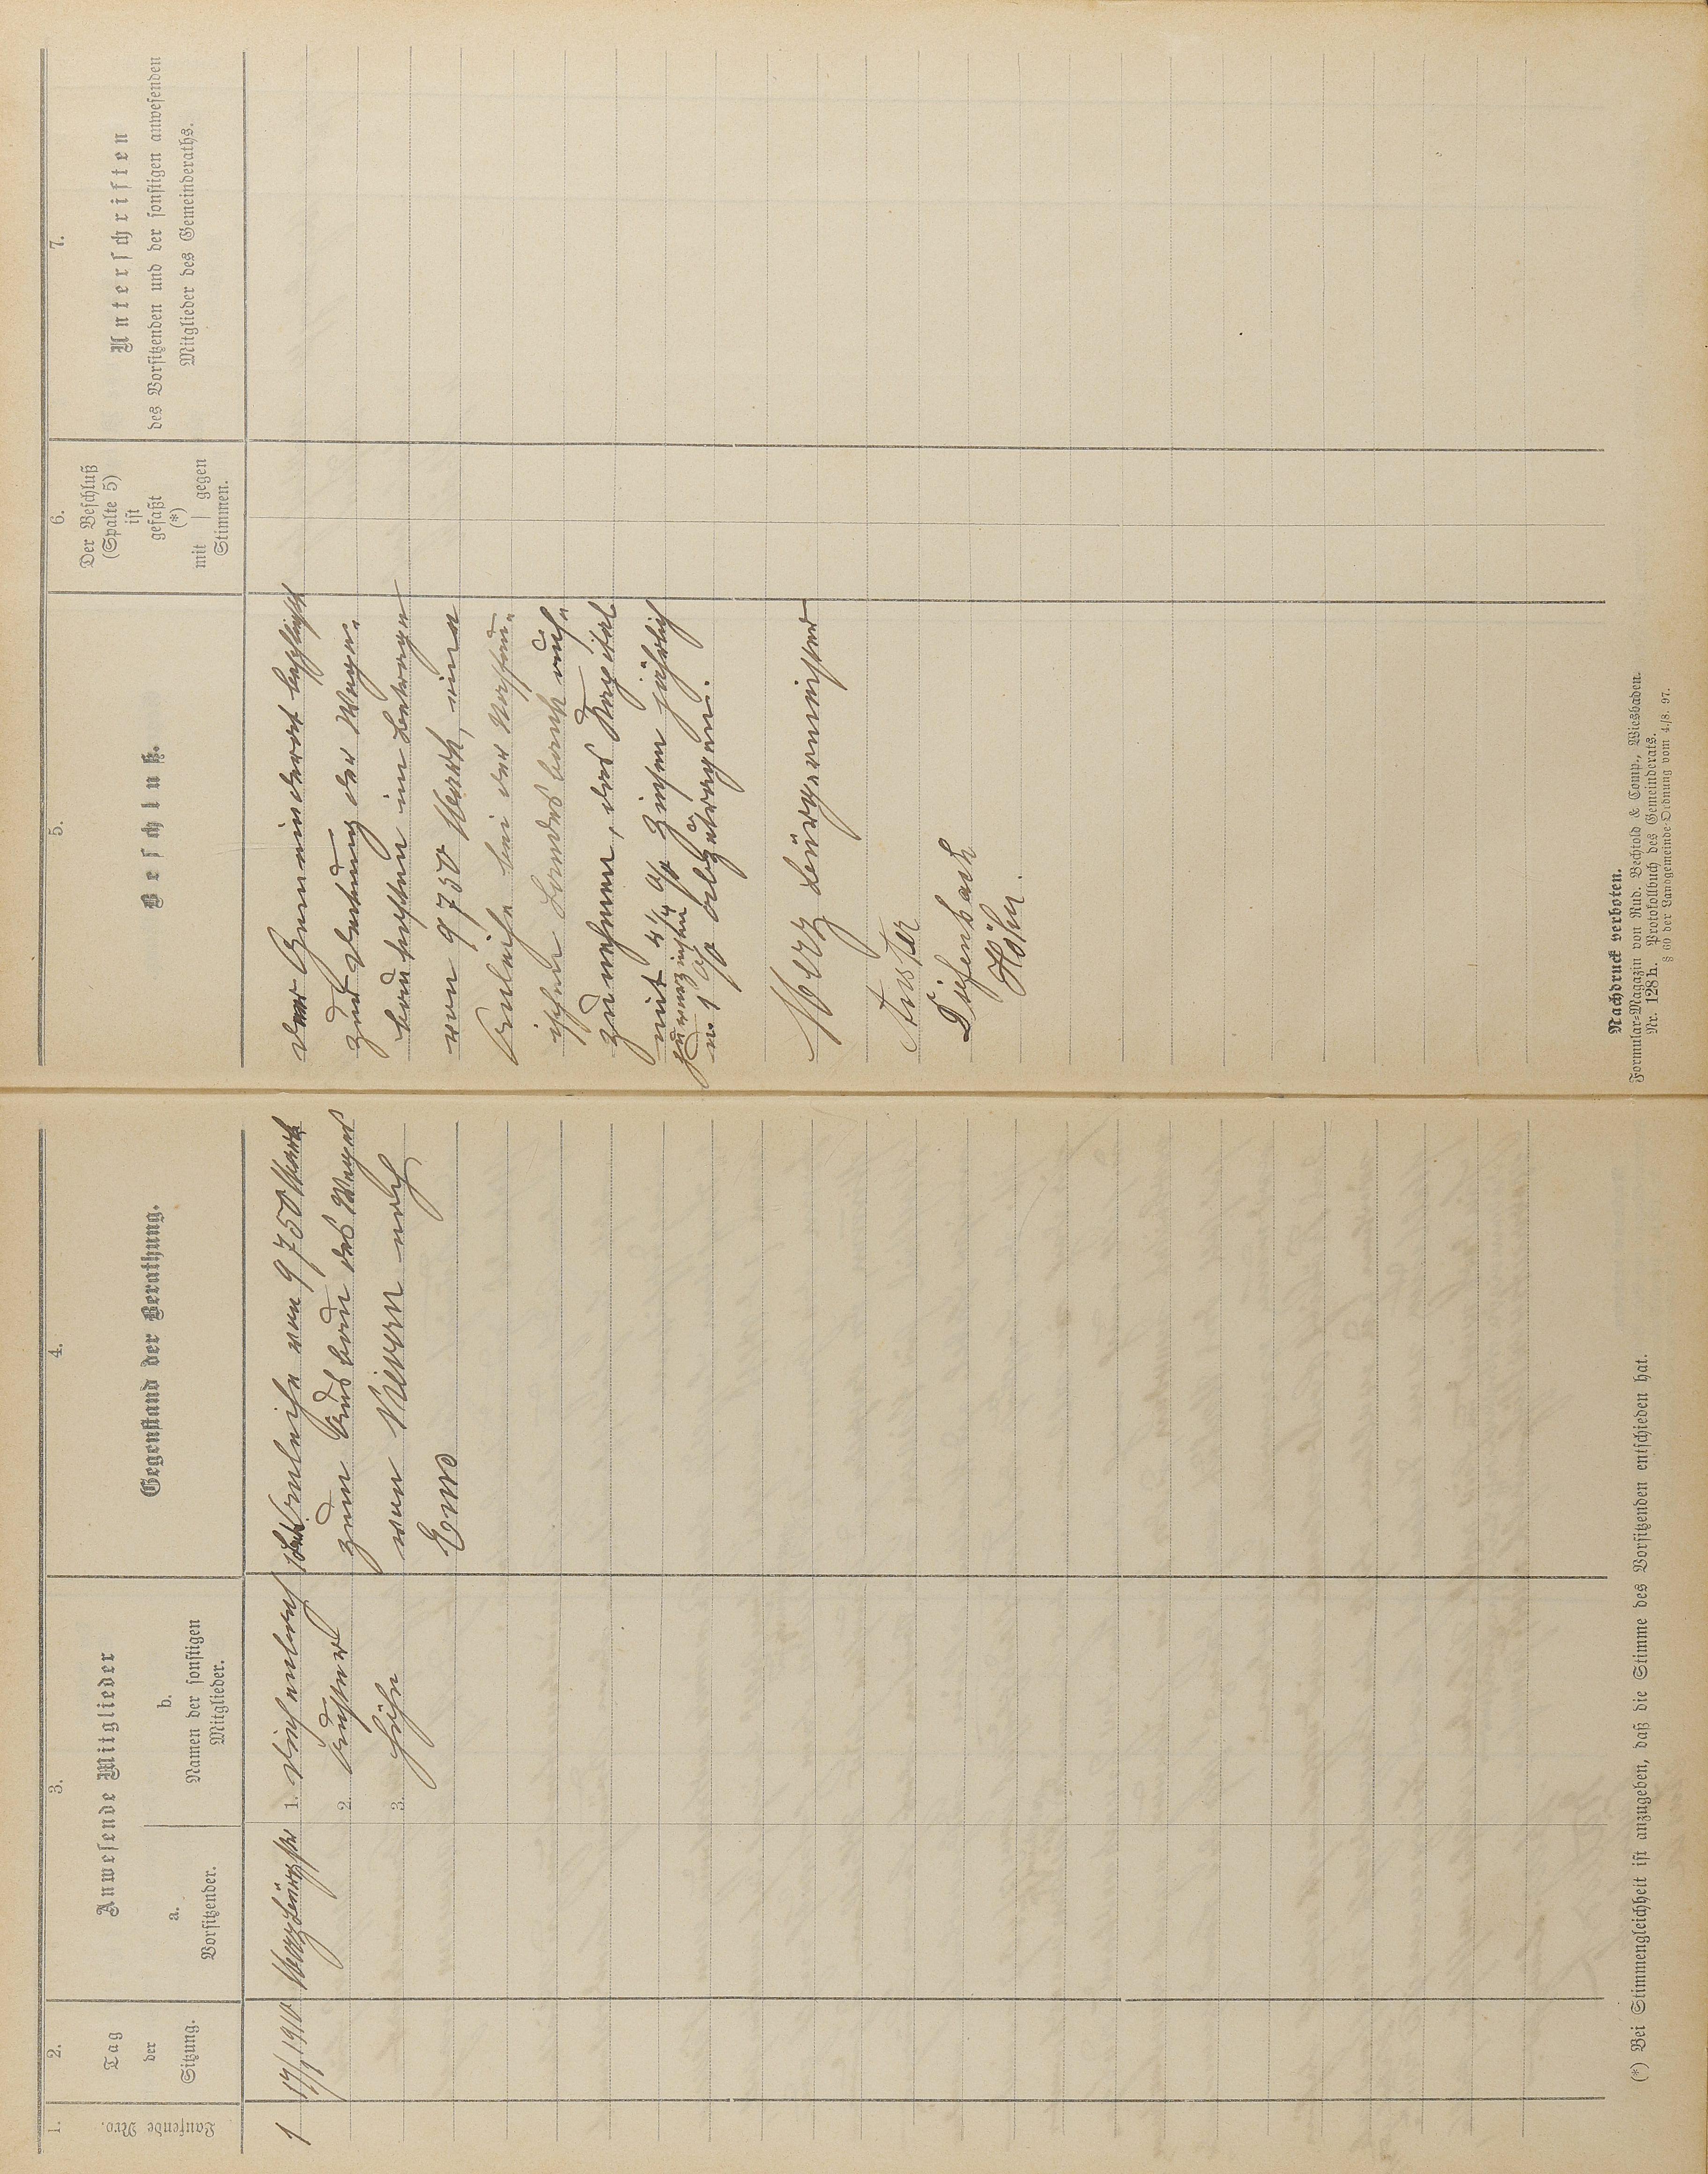 1.
Laufende Nro.
2.
Tag
der
Sitzung.
3.
Anwesende Mitglieder
a.
Vorsitzender.
b.
Namen der sonstigen
Mitglieder.
4.
Gegenstand der Berathung.
1
17/1 1910
Merz Bürgrmstr
1.
2. Auster
3. Höhn
Anleihe von 9750 Mark
zum Ausbau des Weges
von Nievern nach
Ems
(*) Bei Stimmengleichheit ist anzugeben, daß die Stimme des Vorsitzenden entschieden hat.
5.
Beschluß.
6.
Der Beschluß
(Spalte 5)
ist
gefaßt
(*)
mit | gegen
Stimmen.
7.
Unterschriften
des Vorsitzenden und der sonstigen anwesenden
Mitglieder des Gemeinderaths.
Der Gemeinderat beschließt
zur Deckung der Wege-
baukosten im Betrage
von 9750 Mark, eine
Anleihe bei der Nassau-
ischen Landesbank auf-
zunehmen, das Kapital
mit 4 1/4 % Zinsen jährlich
zu verzinsen
u. 1 % abzutragen.
Merz Bürgermeister
Auster
Diefenbach
Höhn.
Nachdruck verboten.
Formular-Magazin von Rud. Bechtold & Comp., Wiesbaden.
Nr. 128h. Protokollbuch des Gemeinderats.
§ 60 der Landgemeinde-Ordnung vom 4./8. 97.